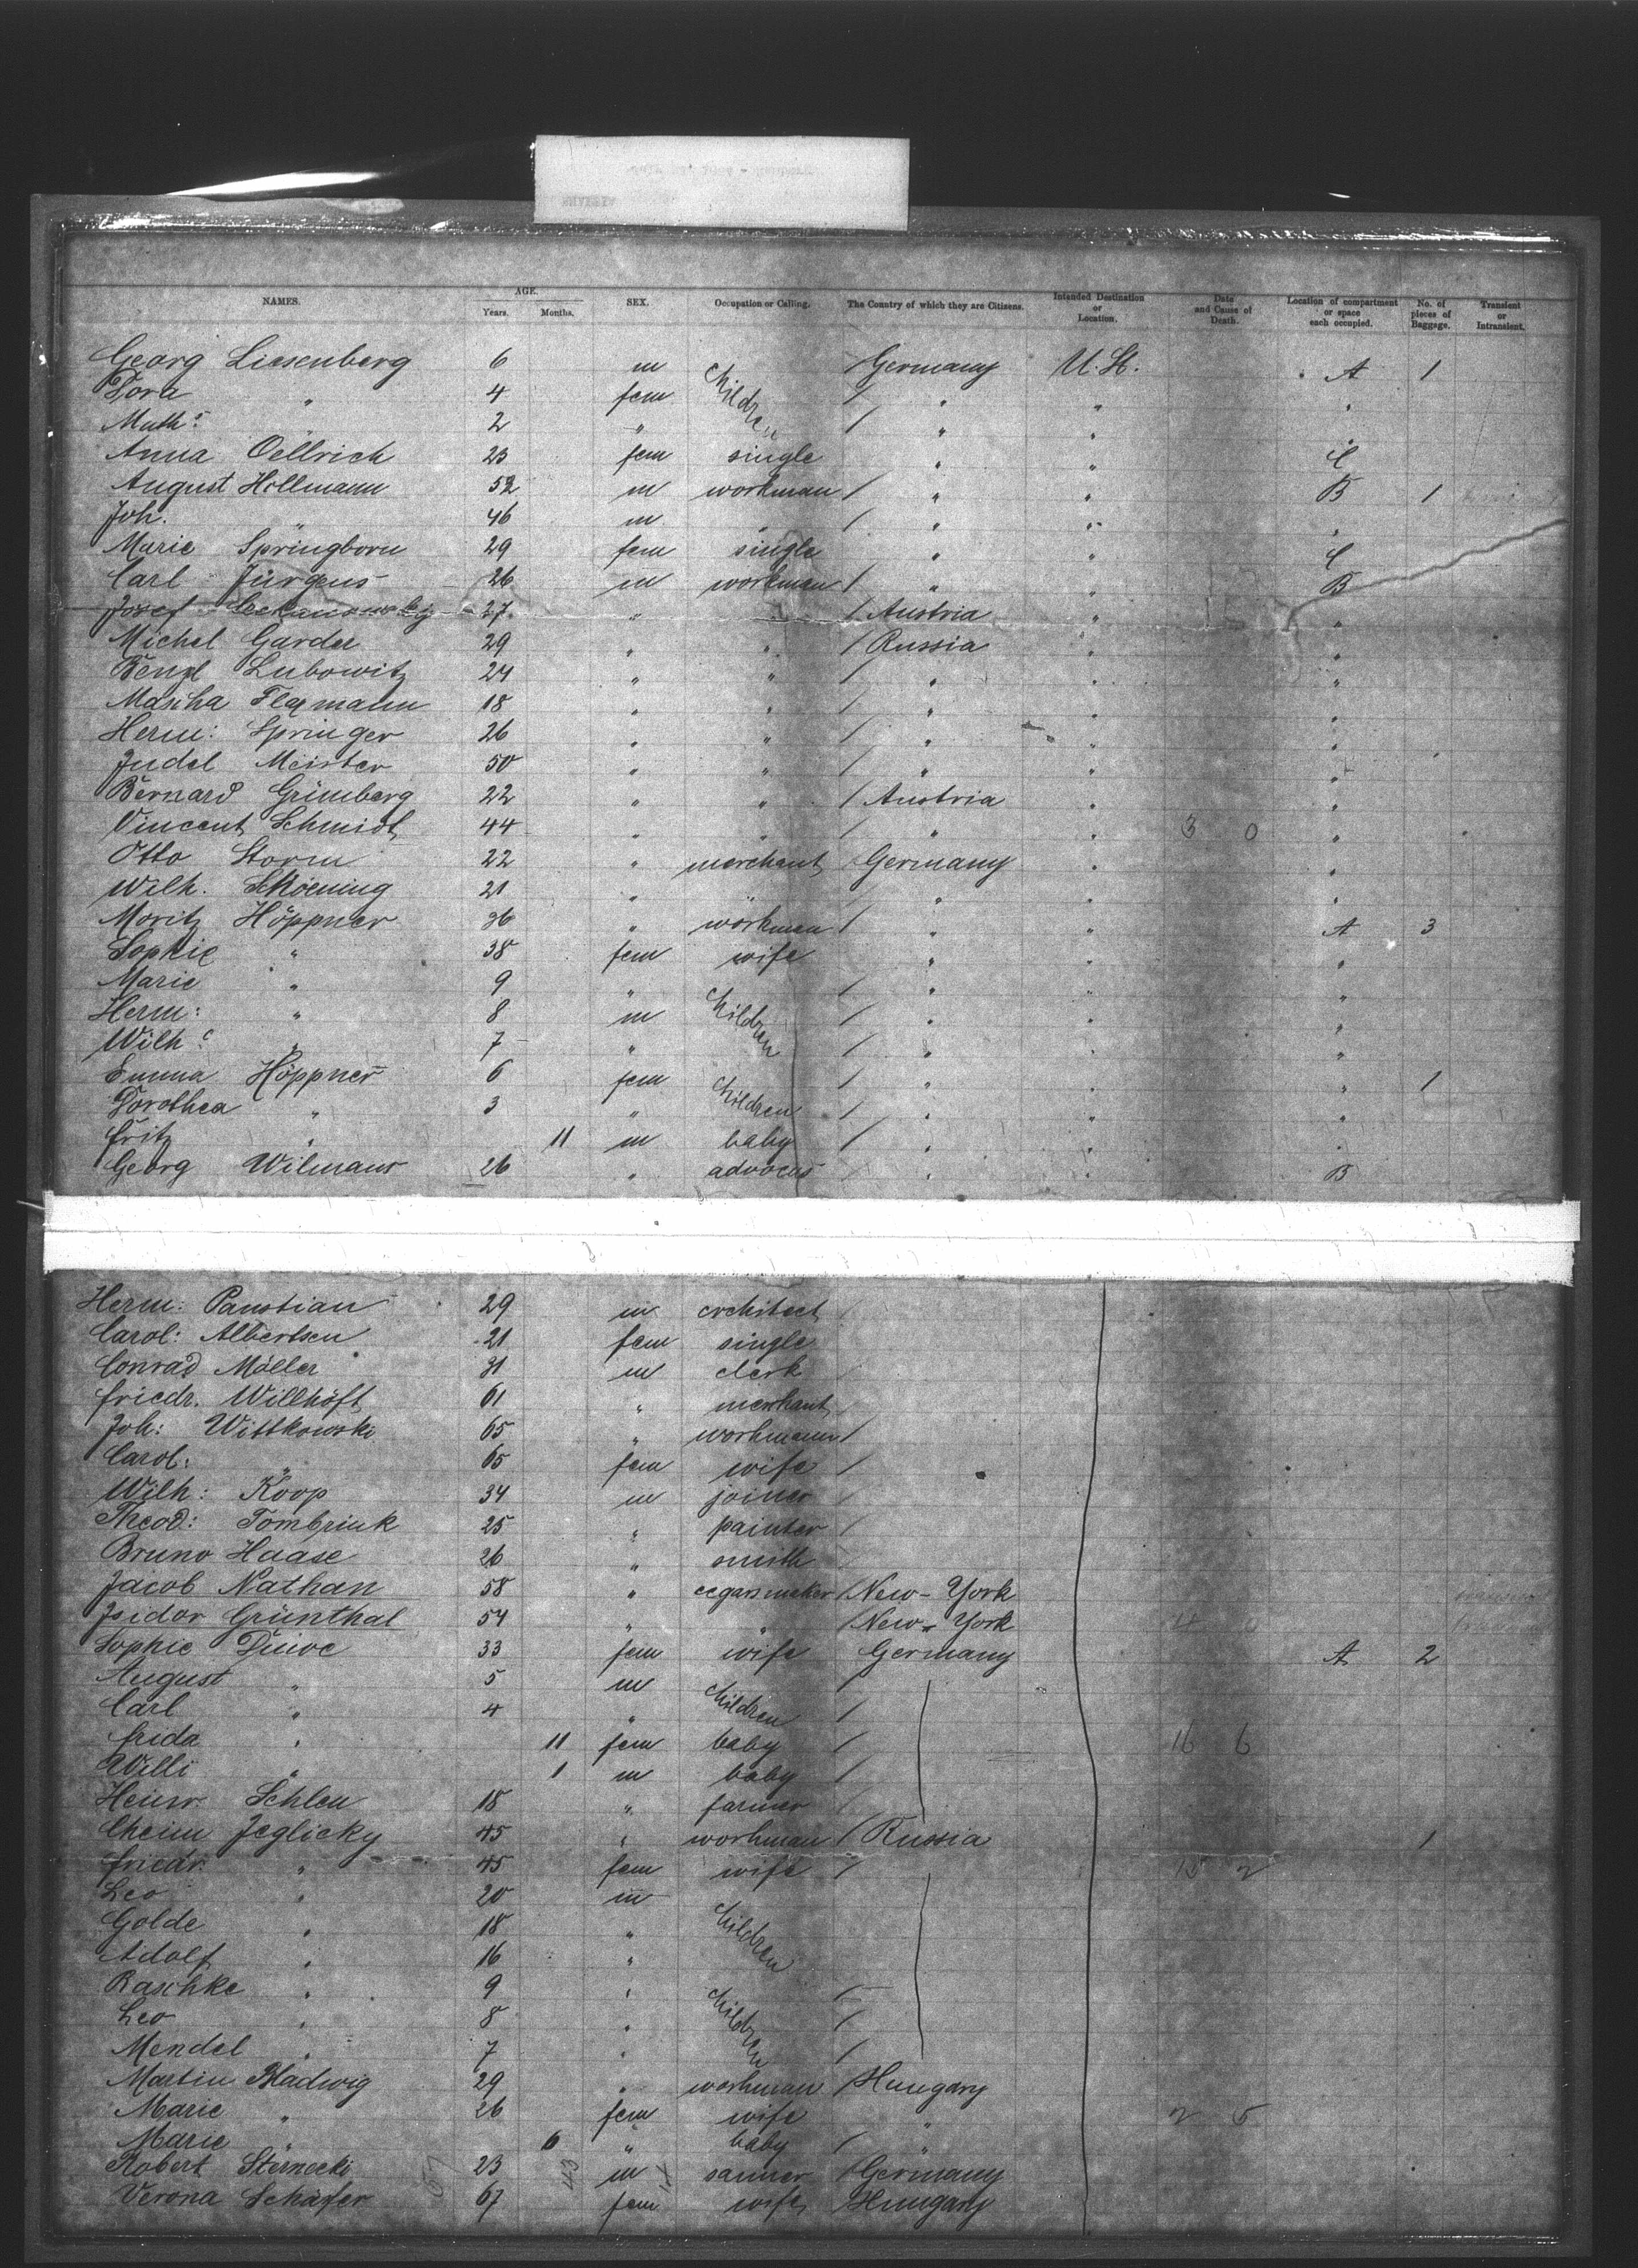 NAMES. AGE. Years. Months. SEX. Occupation or Calling. The Country of which they are Citizens. Intended Destination or Location. Date and Cause of Death. Location of compartment or space each occupied. No. of pieces of Baggage. Transient or Intransient.
Georg Liesenberg 6 m children Germany U. St. A 1
Dora " 4 fem / " " "
Math: " 2 " / " "
Anna Oellrich 23 fem single " " C
August Hillmann 52 m workman / " " B 1
Joh. " 46 m " / " " "
Marie Springborn 29 fem single " " C
Carl Jürgens 26 m workman / " " B
Josef 27 " " / Austria " "
Michel Garder 29 " " / Russia " "
Benzl Lubowitz 24 " " / " " "
Mascha Flaxmann 18 " " / " " "
Herm: Springer 26 " " / " " "
Judel Meister 50 " " / " " "
Bernard Grünberg 22 " " / Austria " "
Vincent Schmidt 44 " " / " " 3 0 "
Otto Storm 22 " merchant Germany " "
Wilh. 21 " " / " " "
Moritz Höppner 36 " workman / " " A 3
Sophie " 38 fem wife " " "
Marie " 9 " children / " " "
Herm: " 8 m / " " "
Wilh: " 7 " / " " "
Emma Höppner 6 fem children / " " " 1
Dorothea " 3 " / " " "
Fritz " 11 m baby / " " "
Georg Wilmans 26 " / " " B
Herm: Paustian 29 m architect /
Carol: Albertsen 21 fem single
Conrad Möller 31 m clerk /
Friedr. Willhöft 61 " merchant /
Joh: Wittkowski 65 " workmann /
Carol: " 65 fem wife /
Wilh: Koop 34 m joiner /
Theod: Tombrink 25 " painter /
Bruno Haase 26 " smith /
Jacob Nathan 58 " cegarmaker / New-York
Isidor Grünthal 54 " " / New-York
Sophie Duwe 33 fem wife Germany A 2
August " 5 m children
Carl " 4 " /
Frida " 11 fem baby / 16 6
Willi " 1 m baby /
Heinr. Schleu 18 " farmer /
Cheim Jeglicky 45 " workman / Russia 1
Friedr. " 45 fem wife / 15 2
Leo " 20 m children
Golde " 18 "
Adolf " 16 "
Raschke " 9 " children /
Leo " 8 " /
Mendel " 7 " /
Martin Bladwig 29 " workman / Hungary
Marie " 26 fem wife " 2 5
Marie " 6 " baby / "
Robert Sternecki 23 m / Germany
Verona Schäfer 67 fem wife Hungary